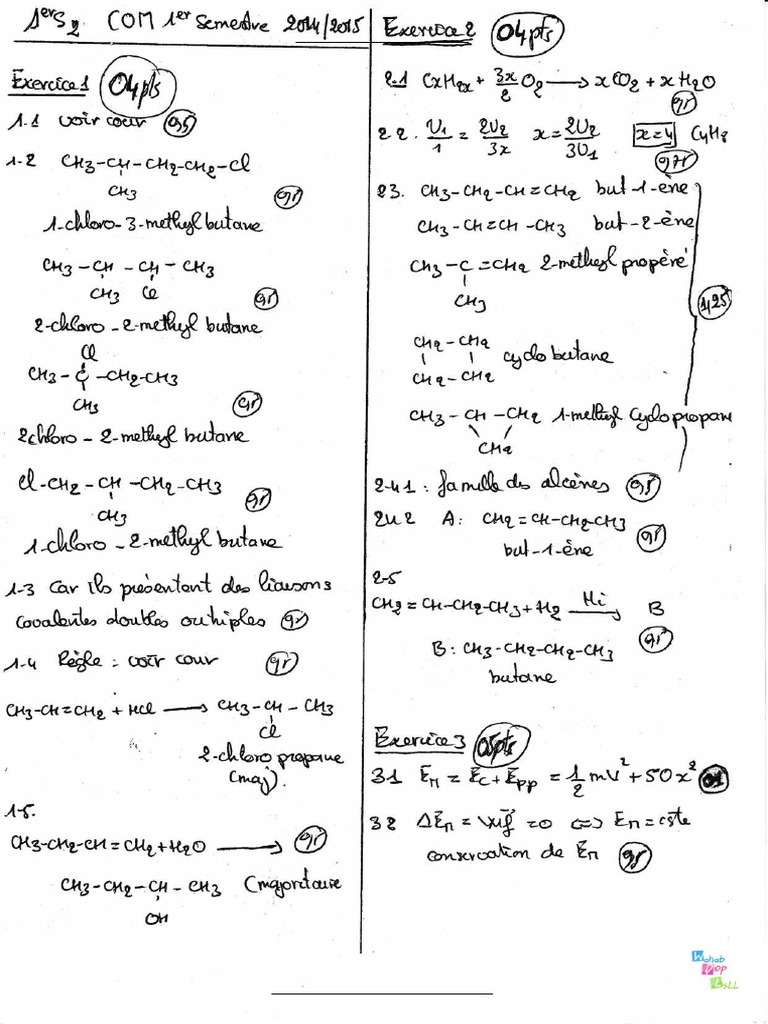 1erS2 COM 1er semestre 2014/2015
Exercice 1 04pts
1-1 voir cour 0,5
1-2 CH3-CH-CH2-CH2-Cl
CH3
1-chloro-3-methyl butane
CH3-CH-CH-CH3
CH3 Cl
2-chloro-2-methyl butane
Cl
CH3-C-CH2-CH3
CH3
2chloro-2-methyl butane
Cl-CH2-CH-CH2-CH3
CH3
1-chloro-2-methyl butane
1-3 Car ils présentent des liaisons
covalentes doubles
1-4 Règle : voir cour
CH3-CH=CH2 + HCl → CH3-CH-CH3
Cl
2-chloro propane
(maj).
1-5.
CH3-CH2-CH=CH2+H2O →
CH3-CH2-CH-CH3 (majoritaire
OH
Exercice 2 04pts
2.1 CxH2x + 3x/2 O2 → xCO2 + xH2O
2.2. V1/1 = 2V2/3x x = 2V2/3V1 x=4 C4H8
2.3. CH3-CH2-CH=CH2 but-1-ène
CH3-CH=CH-CH3 but-2-ène
CH3-C=CH2 2-methyl propène
CH3
1,25
CH2-CH2
CH2-CH2 cyclobutane
CH3-CH-CH2 1-methyl cyclopropane
CH2
2-4 1 : famille des alcènes
2 4 2 A : CH2=CH-CH2-CH3
but-1-ène
2-5
CH2=CH-CH2-CH3+H2 Ni → B
B : CH3-CH2-CH2-CH3
butane
Exercice 3 05pts
3.1 EM = EC + Epp = 1/2 mV² + 50x² 01
3.2 ΔEM = =0 ⇔ EM = cste
conservation de EM
Wahab
Pop
LSLL